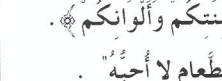 وَأَلْوَانِكُمْ ﴾ .
طَعام لا أُحبُّهُ" .